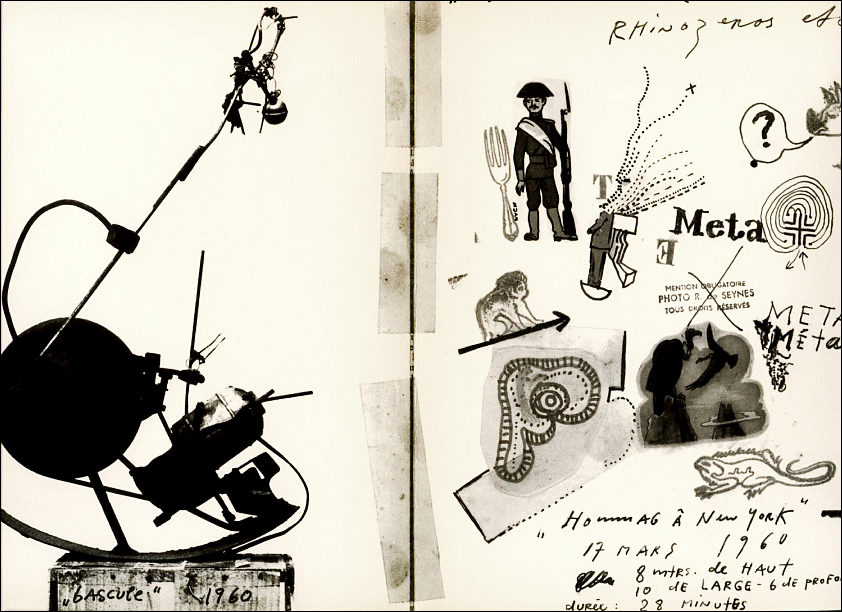 RHinozeros
?
T
Meta
E
MENTION OBLIGATOIRE
PHOTO R. de SEYNES
TOUS DROITS RÉSERVÉS
META
Méta
"HommAG à New York"
17 MARS 1960
8 mtrs. de HAUT
10 de LARGE - 6 de PROFO
durée: 28 MINUTES
"bascule" 1960